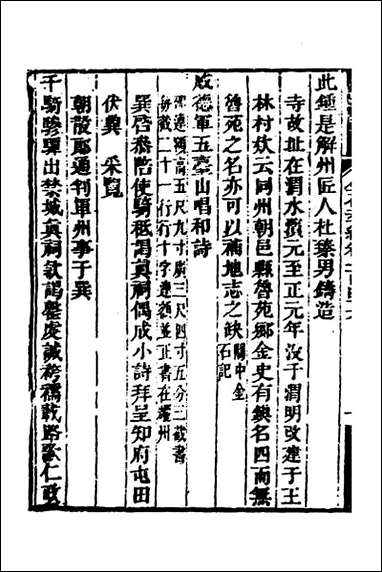 此鍾是解州匠人杜臻男鑄造
寺故址在渭水濱元至正元年沒于渭明改建于王
林村款云同州朝邑縣魯苑鄉金史有鎮名四而無
魯苑之名亦可以補地志之缺關中金石記
威德軍五臺山唱和詩
碑連額高五尺九寸廣三尺四寸五分二截書
每截二十一行行十字連額並正書在耀州
巽啓恭陪使騎祗謁真祠偶成小詩拜呈知府屯田
伏冀 采覽
朝散郎通判軍州事子巽
千騎驂驔出禁城真祠欽謁罄虔誠禱祈路
仁政